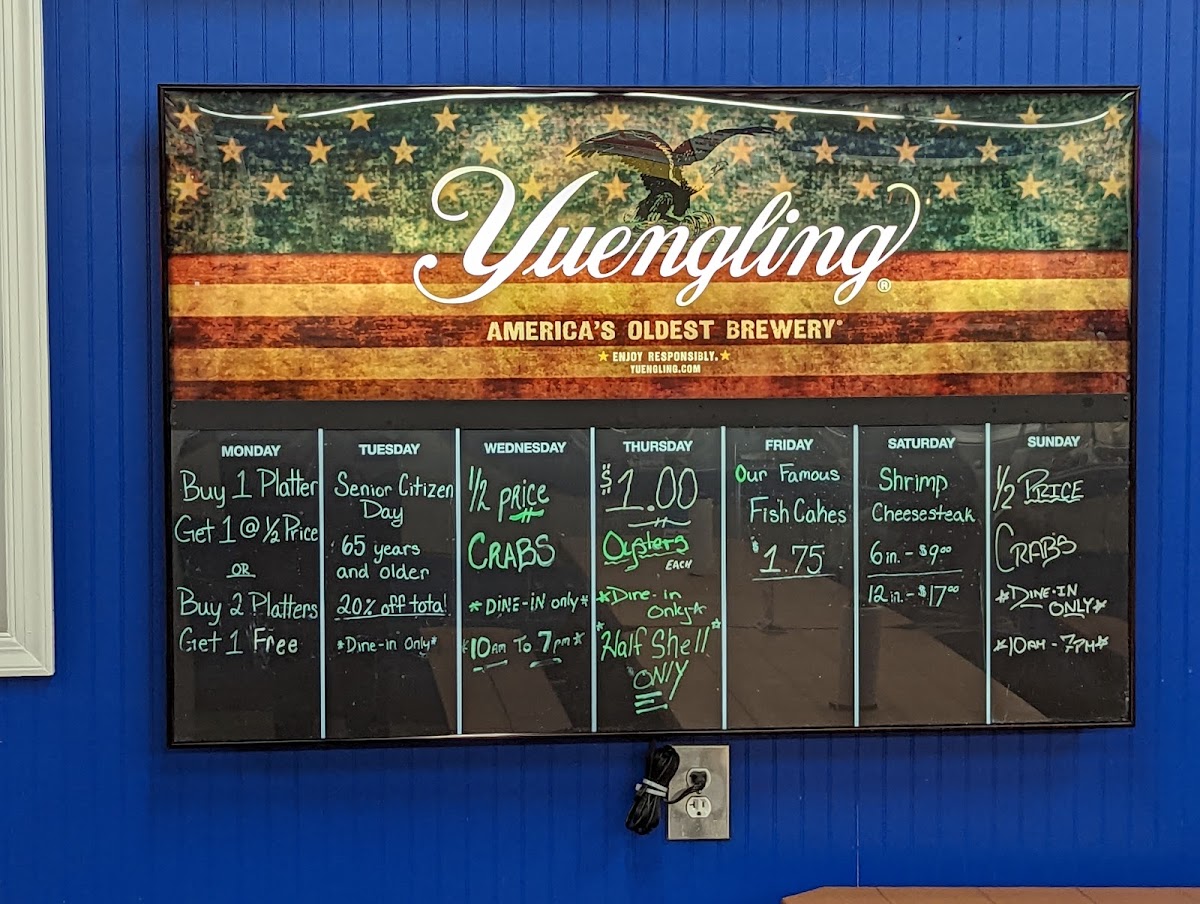 Yuengling®
AMERICA'S OLDEST BREWERY®
ENJOY RESPONSIBLY.
YUENGLING.COM
MONDAY
Buy 1 Platter
Get 1 @ 1/2 Price
OR
Buy 2 Platters
Get 1 Free
TUESDAY
Senior Citizen
Day
65 years
and older
20% off total
*Dine-in Only*
WEDNESDAY
1/2 PRICE
CRABS
*DINE-IN only*
*10AM To 7pm*
THURSDAY
$1.00
Oysters
EACH
*Dine-in
Only*
*Half Shell*
ONLY
FRIDAY
Our Famous
Fish Cakes
$1.75
SATURDAY
Shrimp
Cheesesteak
6in. - $9.00
12 in. - $17.00
SUNDAY
1/2 PRICE
CRABS
*DINE-IN
ONLY*
*10AM - 7PM*